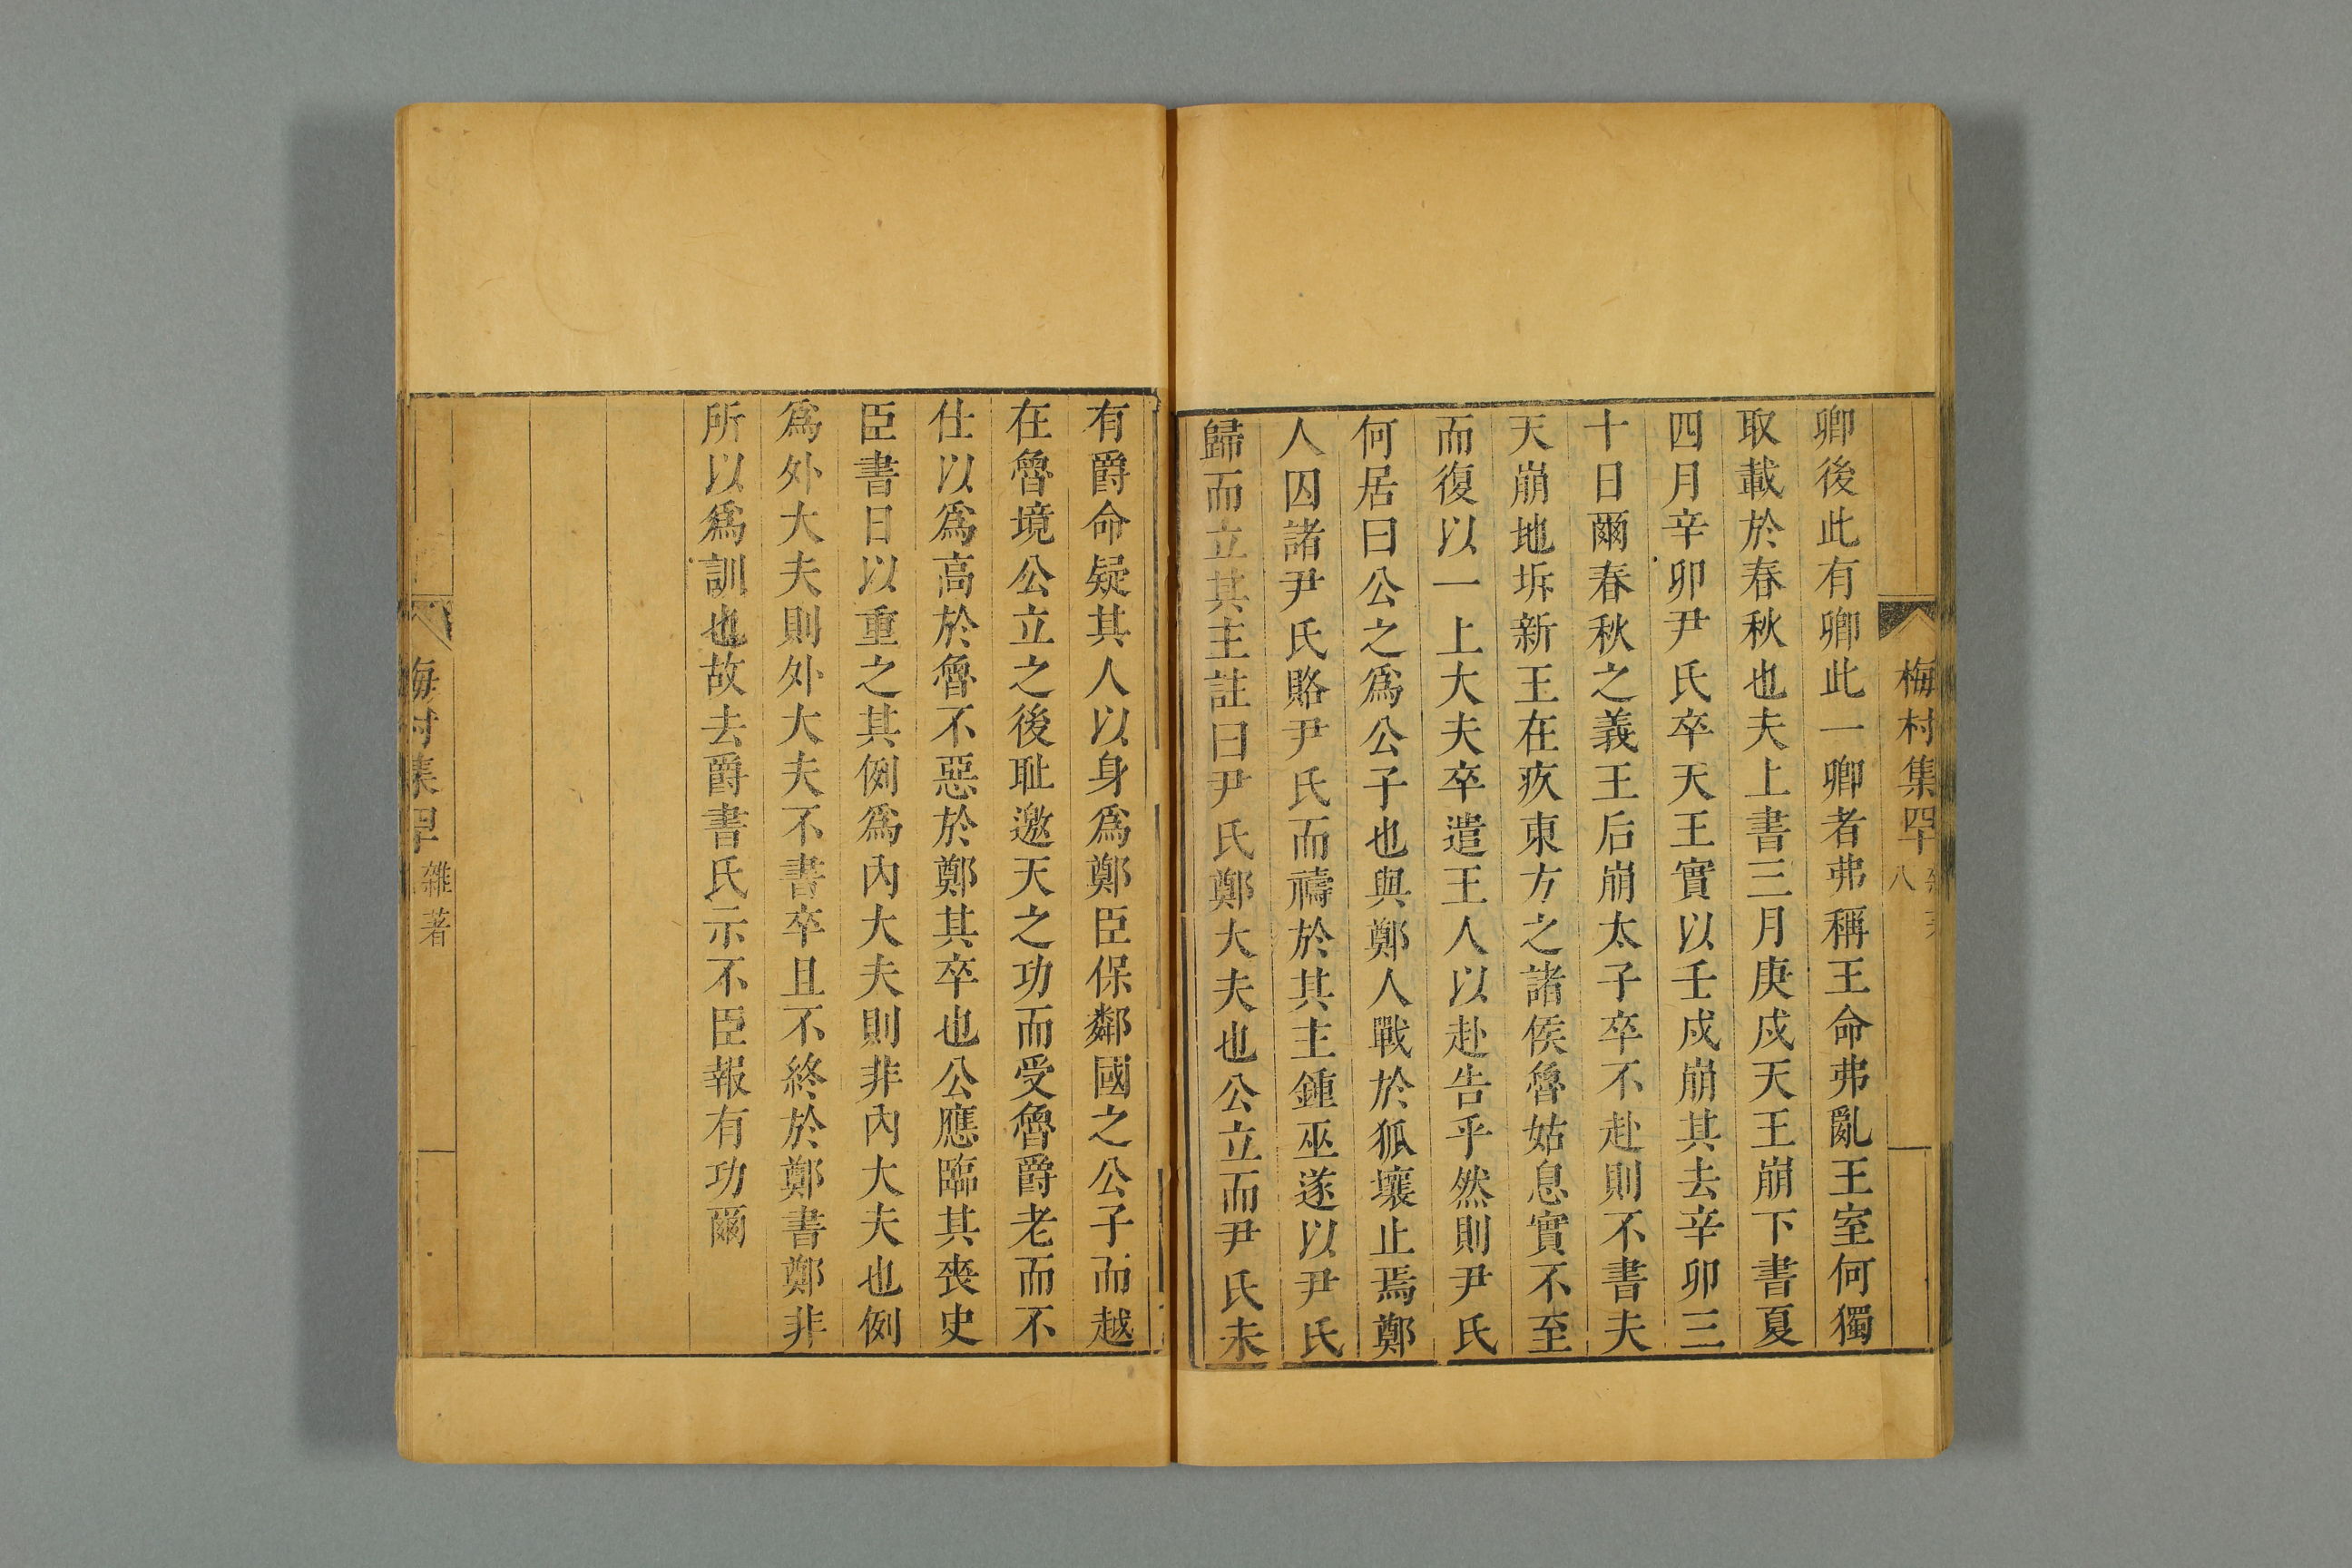 梅村集
八
卿後此有卿此一卿者弗稱王命弗亂王室何獨
取載於春秋也夫上書三月庚戍天王崩下書夏
四月辛卯尹氏卒天王實以壬戍崩其去辛卯三
十日爾春秋之義王后崩太子卒不赴則不書夫
天崩地坼新王在疚東方之諸侯魯姑息實不至
而復以一上大夫卒遣王人以赴告乎然則尹氏
何居曰公之爲公子也與鄭人戰於狐壤止焉鄭
人囚諸尹氏賂尹氏而禱於其主鍾巫遂以尹氏
歸而立其主註曰尹氏鄭大夫也公立而尹氏未
有爵命疑其人以身爲鄭臣保鄰國之公子而越
在魯境公立之後耻邀天之功而受魯爵老而不
仕以爲高於魯不惡於鄭其卒也公應臨其喪史
臣書日以重之其例爲內大夫則非內大夫也例
爲外大夫則外大夫不書卒且不終於鄭書鄭非
所以爲訓也故去爵書氏示不臣報有功爾
梅村集
雜著